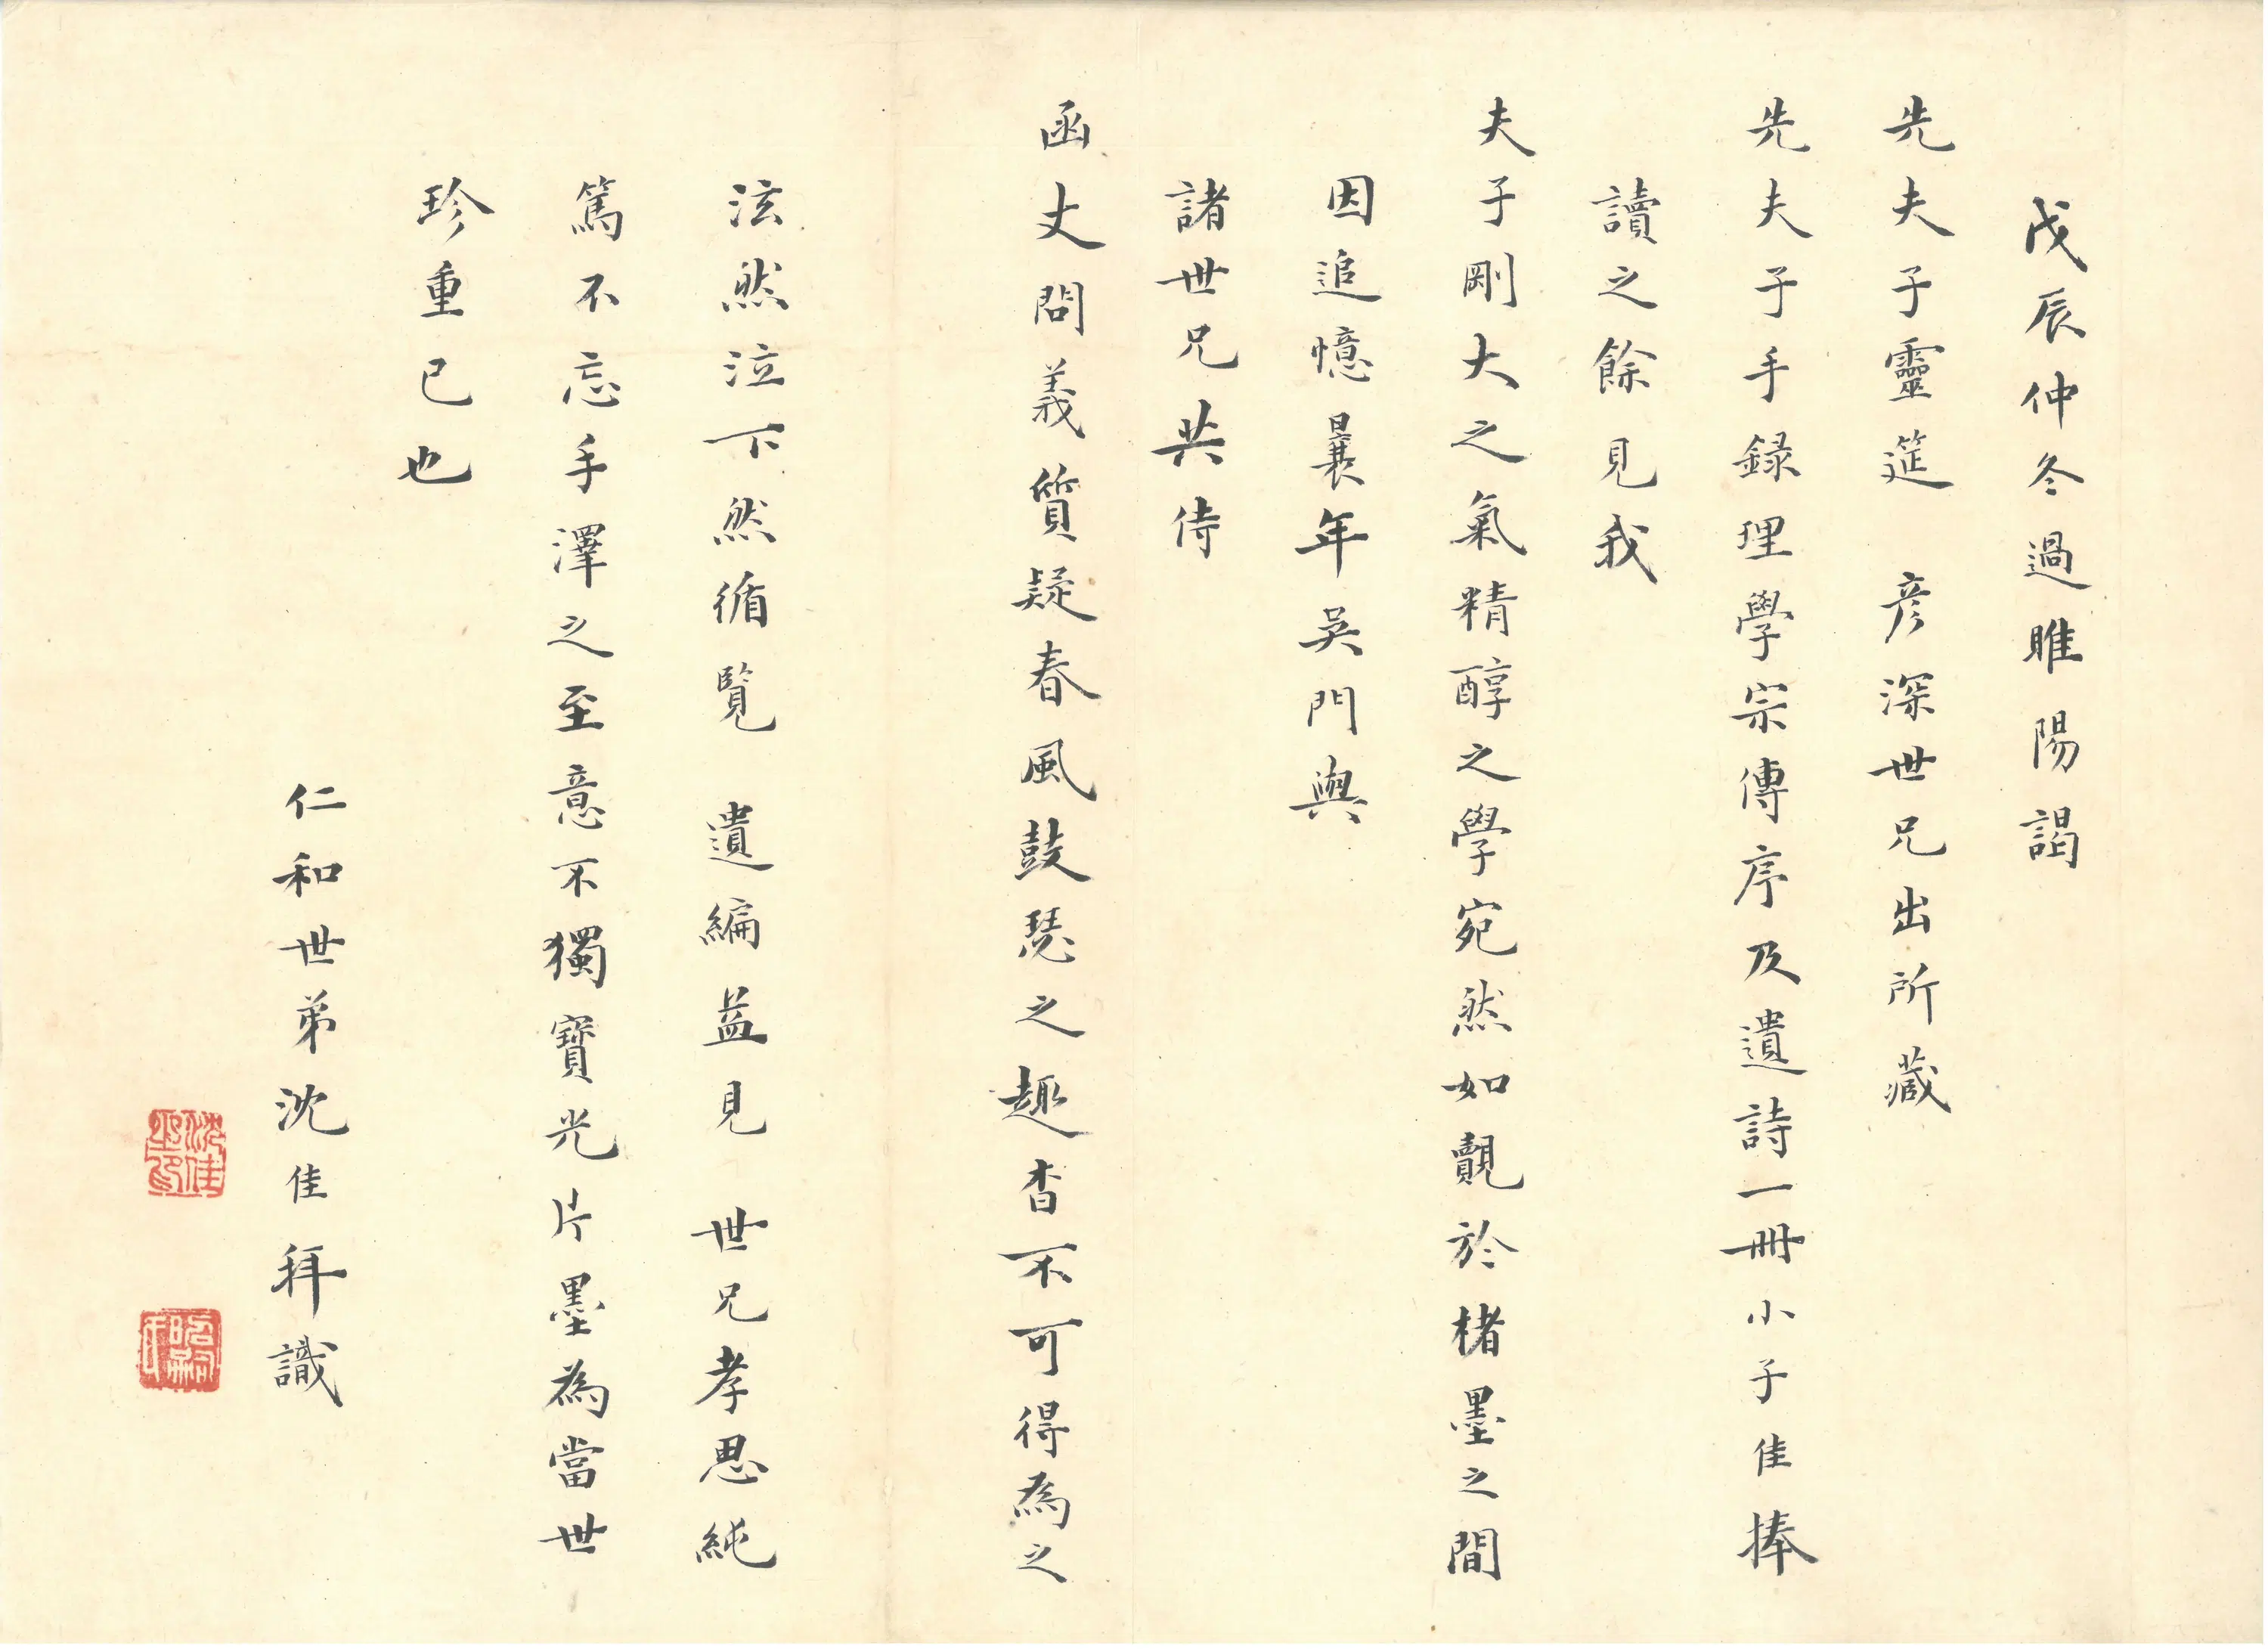 戊辰仲冬過睢陽謁
先夫子靈筵　彦深世兄出所藏
先夫子手録理學宗傳序及遺詩一冊小子佳捧
讀之餘見我
夫子剛大之氣精醇之學宛然如覿於楮墨之間
因追憶曩年吳門與
諸世兄共侍
函丈問義質疑春風鼓瑟之趣杳不可得為之
泫然泣下然循覽　遺編益見　世兄孝思純
篤不忘手澤之至意不獨寶光片墨為當世
珍重已也
仁和世弟沈佳拜識
沈佳
昭嗣